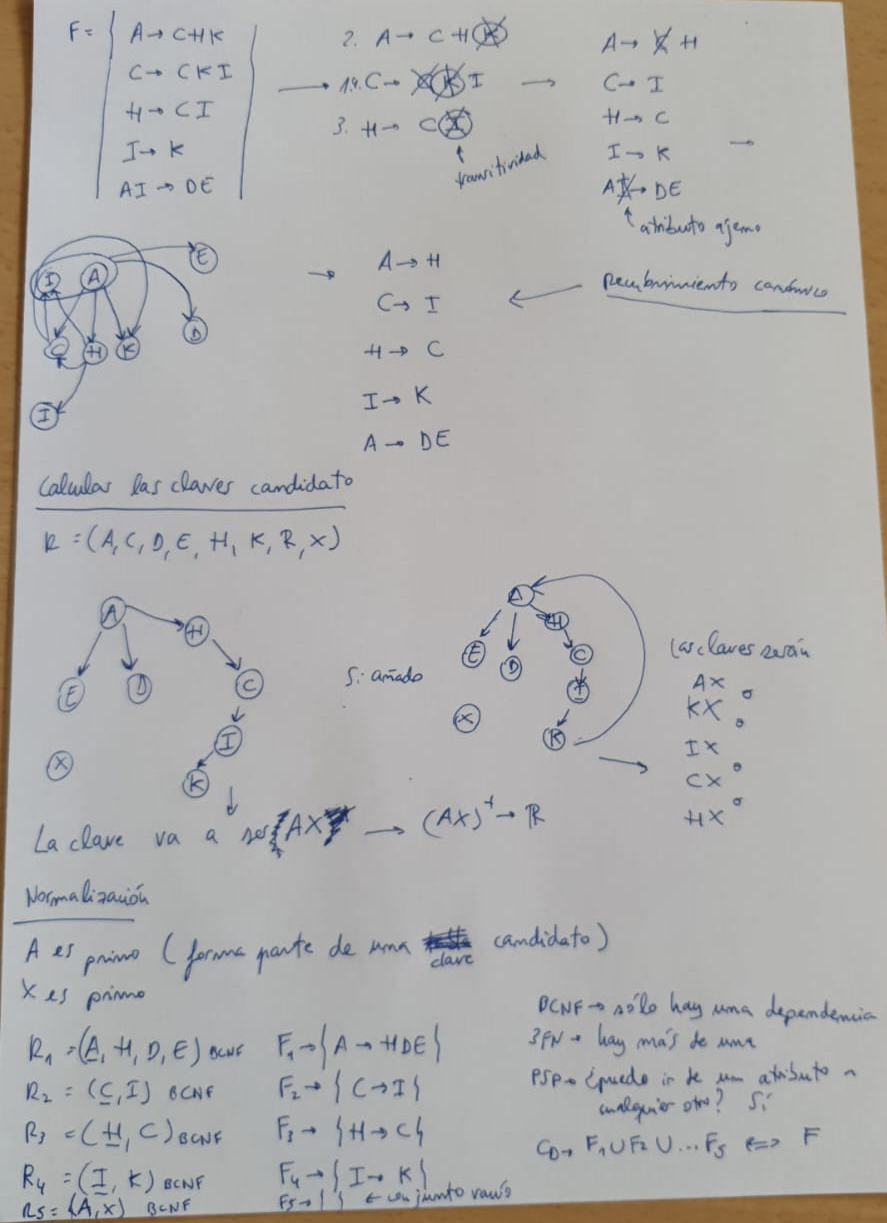 F = { A → CHK
C → CKI
H → CI
I → K
AI → DE
2. A → CHK
1.4. C → CKI
3. H → CI
transitividad
A → C H
C → I
H → C
I → K
AI → DE
atributo ajeno
Recubrimiento canónico
I A E
C H K D
I
A → H
C → I
H → C
I → K
A → DE
Calcular las claves candidato
R = (A, C, D, E, H, K, R, X)
A
H
E D C
I
X
K
Si añado
A
H
E D C
I
X K
Las claves serán
AX o
KX o
IX o
CX o
HX
La clave va a ser {AX} → (AX)⁺ → R
Normalización
A es primo (forma parte de una clave candidato)
X es primo
R1 = (A, H, D, E) BCNF F1 → { A → HDE }
R2 = (C, I) BCNF F2 → { C → I }
R3 = (H, C) BCNF F3 → { H → C }
R4 = (I, K) BCNF F4 → { I → K }
R5 = (A, X) BCNF F5 → { } ← conjunto vacío
BCNF → sólo hay una dependencia
3FN → hay más de una
PSP → ¿puedo ir de un atributo a
cualquier otro? Sí
CD → F1 ∪ F2 ∪ ... F5 <=> F